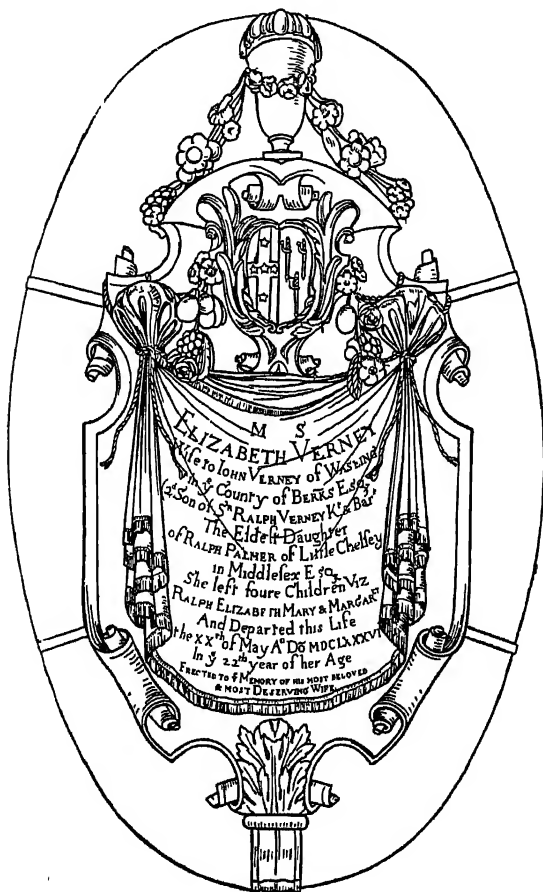 M S
ELIZABETH VERNEY
Wife to IOHN VERNEY of WASLING
in yᵉ County of BERKS Esqʳ
(2ᵈ Son of Sʳ RALPH VERNEY Kᵗ & Barᵗ
The Eldest Daughter
of RALPH PALMER of Little Chelsey
in Middlesex ESQʳ
She left foure Children Viz
RALPH ELIZABETH MARY & MARGARᵗ
And Departed this Life
the XXᵗʰ of May Aº Dō MDCLXXXVI
In yᵉ 22ᵗʰ year of her Age
ERECTED TO yᵉ MEMORY OF HIS MOST BELOVED
& MOST DESERVING WIFE